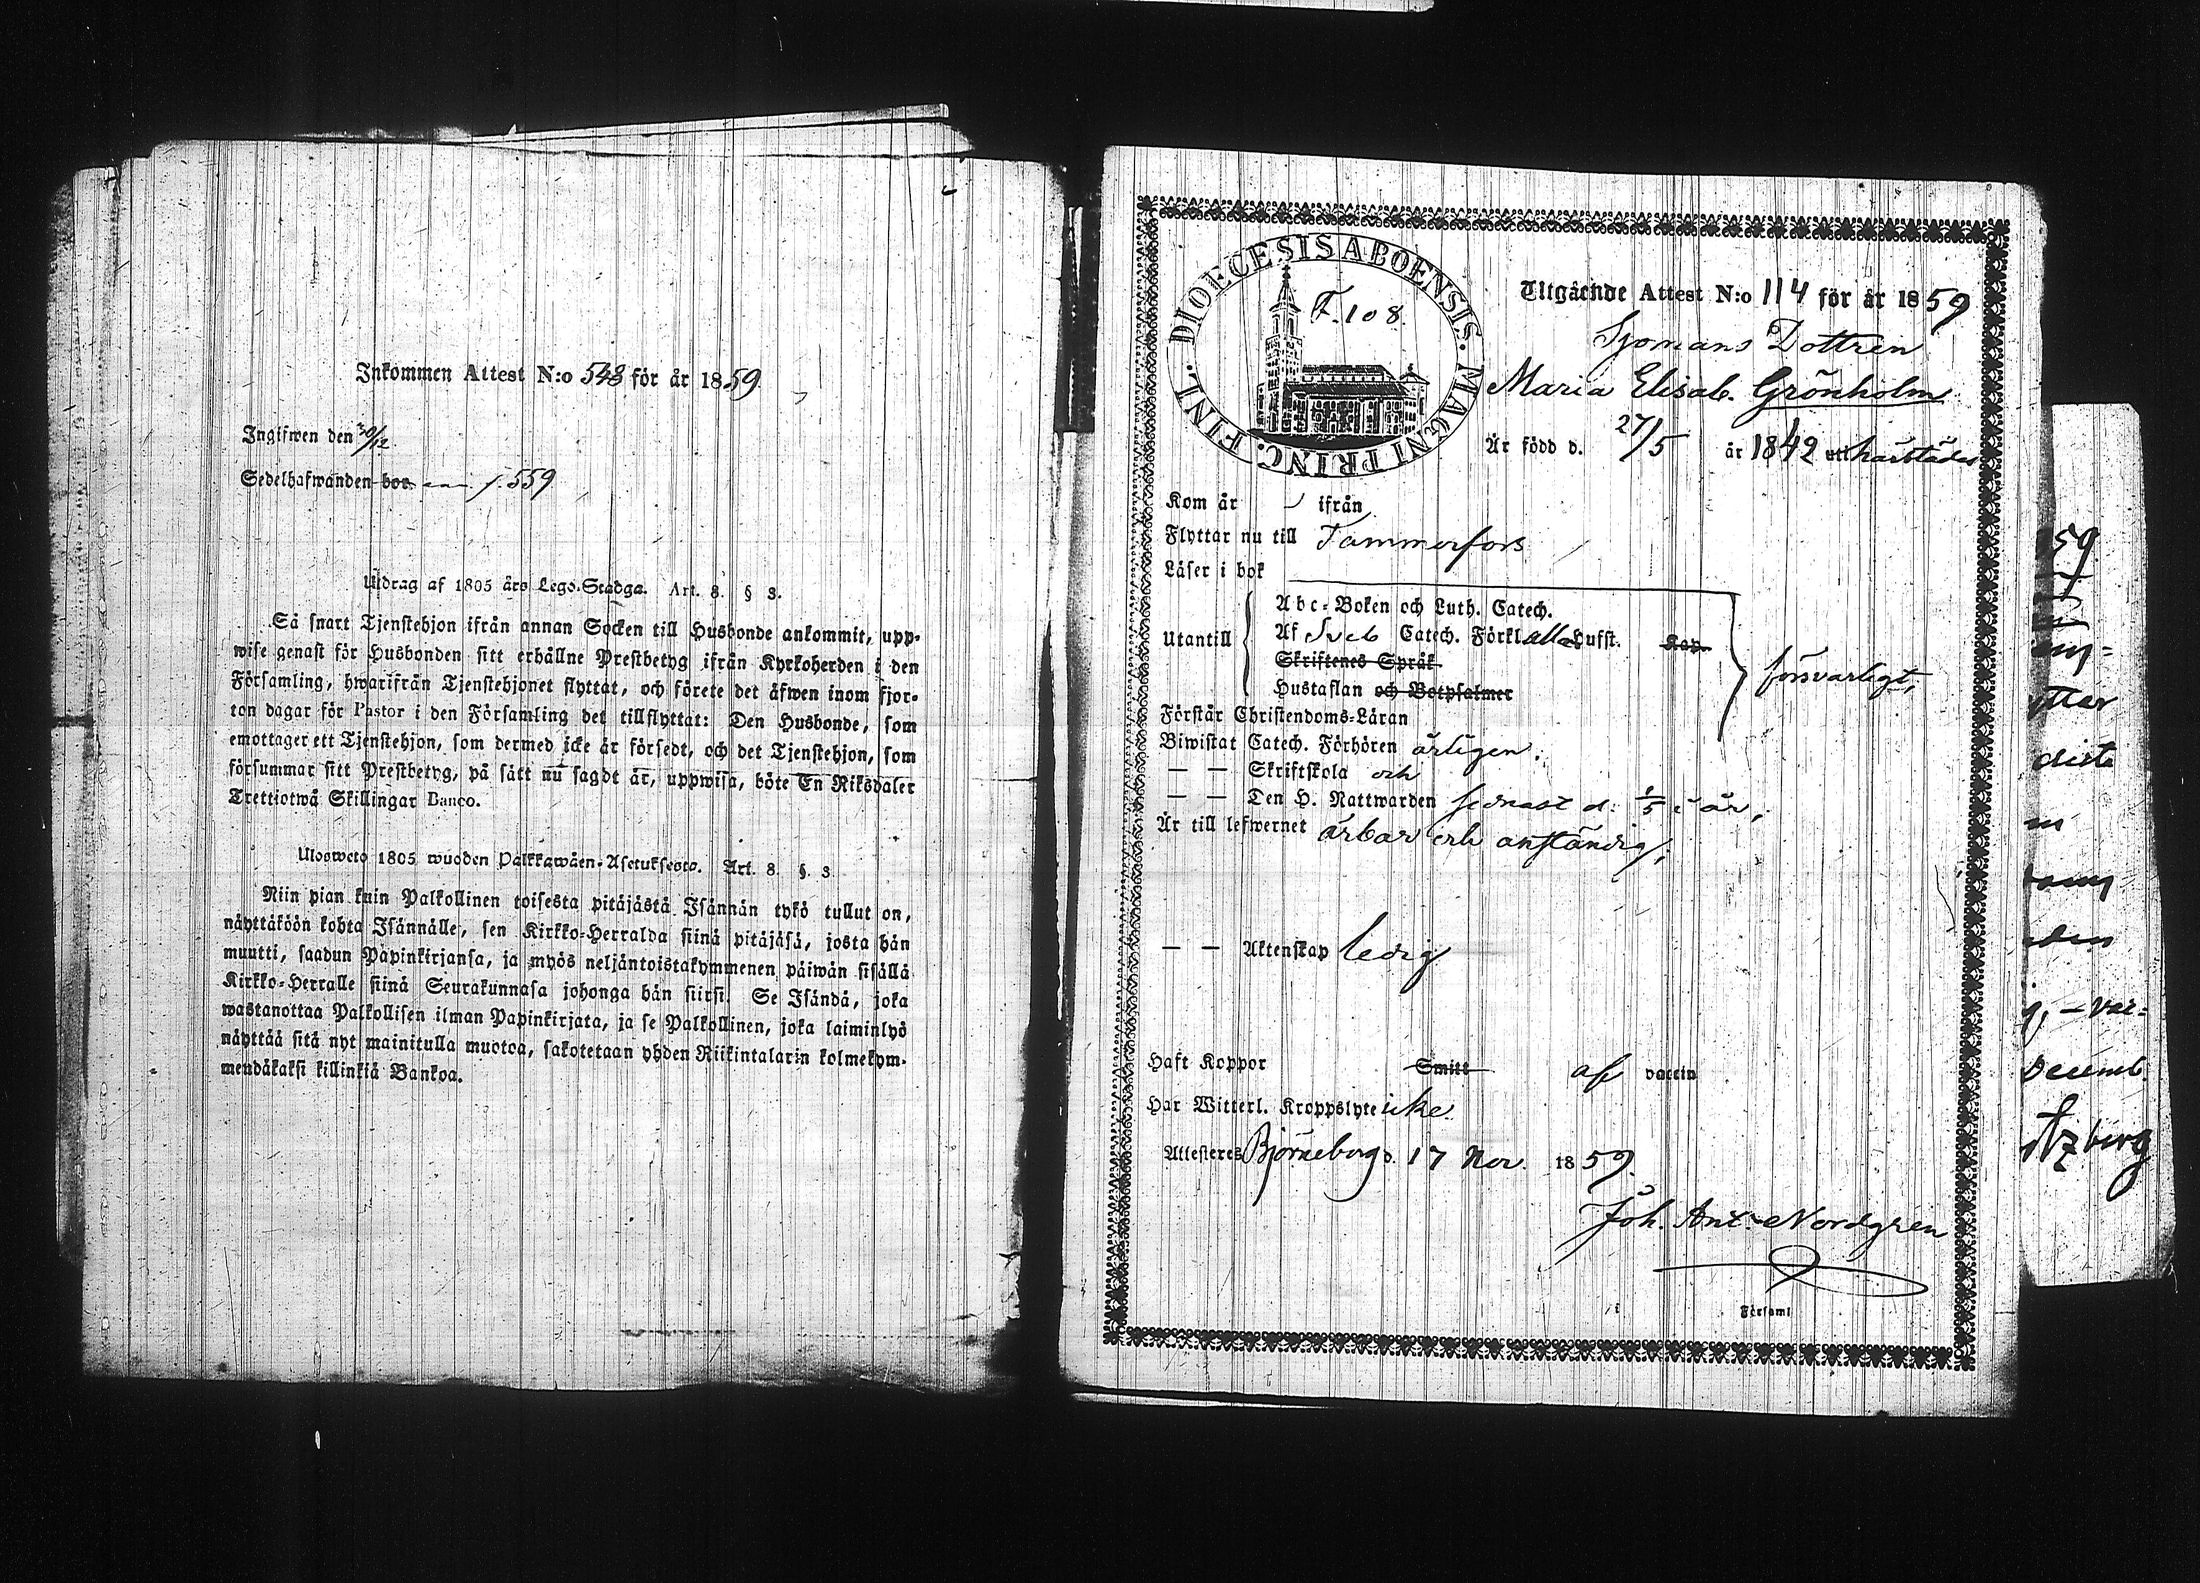 Inkommen Attest N:o 548 för år 1859
Ingifwen den 30/12
Sedelhafwanden bor p. 559
Utdrag af 1805 års Lego-Stadga. Art. 8. § 3.
Så snart Tjenstehjon ifrån annan Socken till Husbonde ankommit, upp-
wise genast för Husbonden sitt erhållne Prestbetyg ifrån Kyrkoherden i den
Församling, hwarifrån Tjenstehjonet flyttat, och förete det äfwen inom fjor-
ton dagar för Pastor i den Församling det tillflyttat: Den Husbonde, som
emottager ett Tjenstehjon, som dermed icke är försedt, och det Tjenstehjon, som
försummar sitt Prestbetyg, på sätt nu sagdt är, uppwisa, böte En Riksdaler
Trettiotwå Skillingar Banco.
Ulosweto 1805 wuoden Palkkawäen-Asetuksesta. Art. 8. §. 3
Niin pian kuin Palkollinen toisesta pitäjästä Isännän tykö tullut on,
näyttäköön kohta Isännälle, sen Kirkko-Herralda siinä pitäjäsä, josta hän
muutti, saadun Papinkirjansa, ja myös neljäntoistakymmenen päiwän sisällä
Kirkko-Herralle siinä Seurakunnasa johonga hän siirsi. Se Isändä, joka
wastanottaa Palkollisen ilman Papinkirjata, ja se Palkollinen, joka laiminlyö
näyttää sitä nyt mainitulla muotoa, sakotetaan yhden Riikintalarin kolmekym-
mendäkaksi killinkiä Bankoa.
DIOECESIS ABOENSIS. MAGNI PRINC. FINL.
F. 108
Utgående Attest N:o 114 för år 1859
Sjomans Dottren
Maria Elisab. Grönholm
Är född d. 27/5 år 1842 uti härstädes
Kom år – ifrån
Flyttar nu till Tammerfors
Läser i bok
Abc-Boken och Luth. Catech.
Utantill Af Sveb Catech. Förkl alla Hufst. Kap.
Skriftenes Språk
Hustaflan och Botpsalmer
försvarligt,
Förstår Christendoms-Läran
Biwistat Catech. Förhören årligen.
— — Skriftskola och
— — Den H. Nattwarden sednast d. 1/5 i år,
Är till lefwernet ärbar och anständig,
— — Äktenskap ledig
Haft Koppor Smitt af vaccin
Har Witterl. Kroppslyte icke
Attesteres Björneborg d. 17 Nov. 1859.
Joh. Ant. Nordgren
i Församl
59
ttar
diste
den
var=
Decemb.
berg